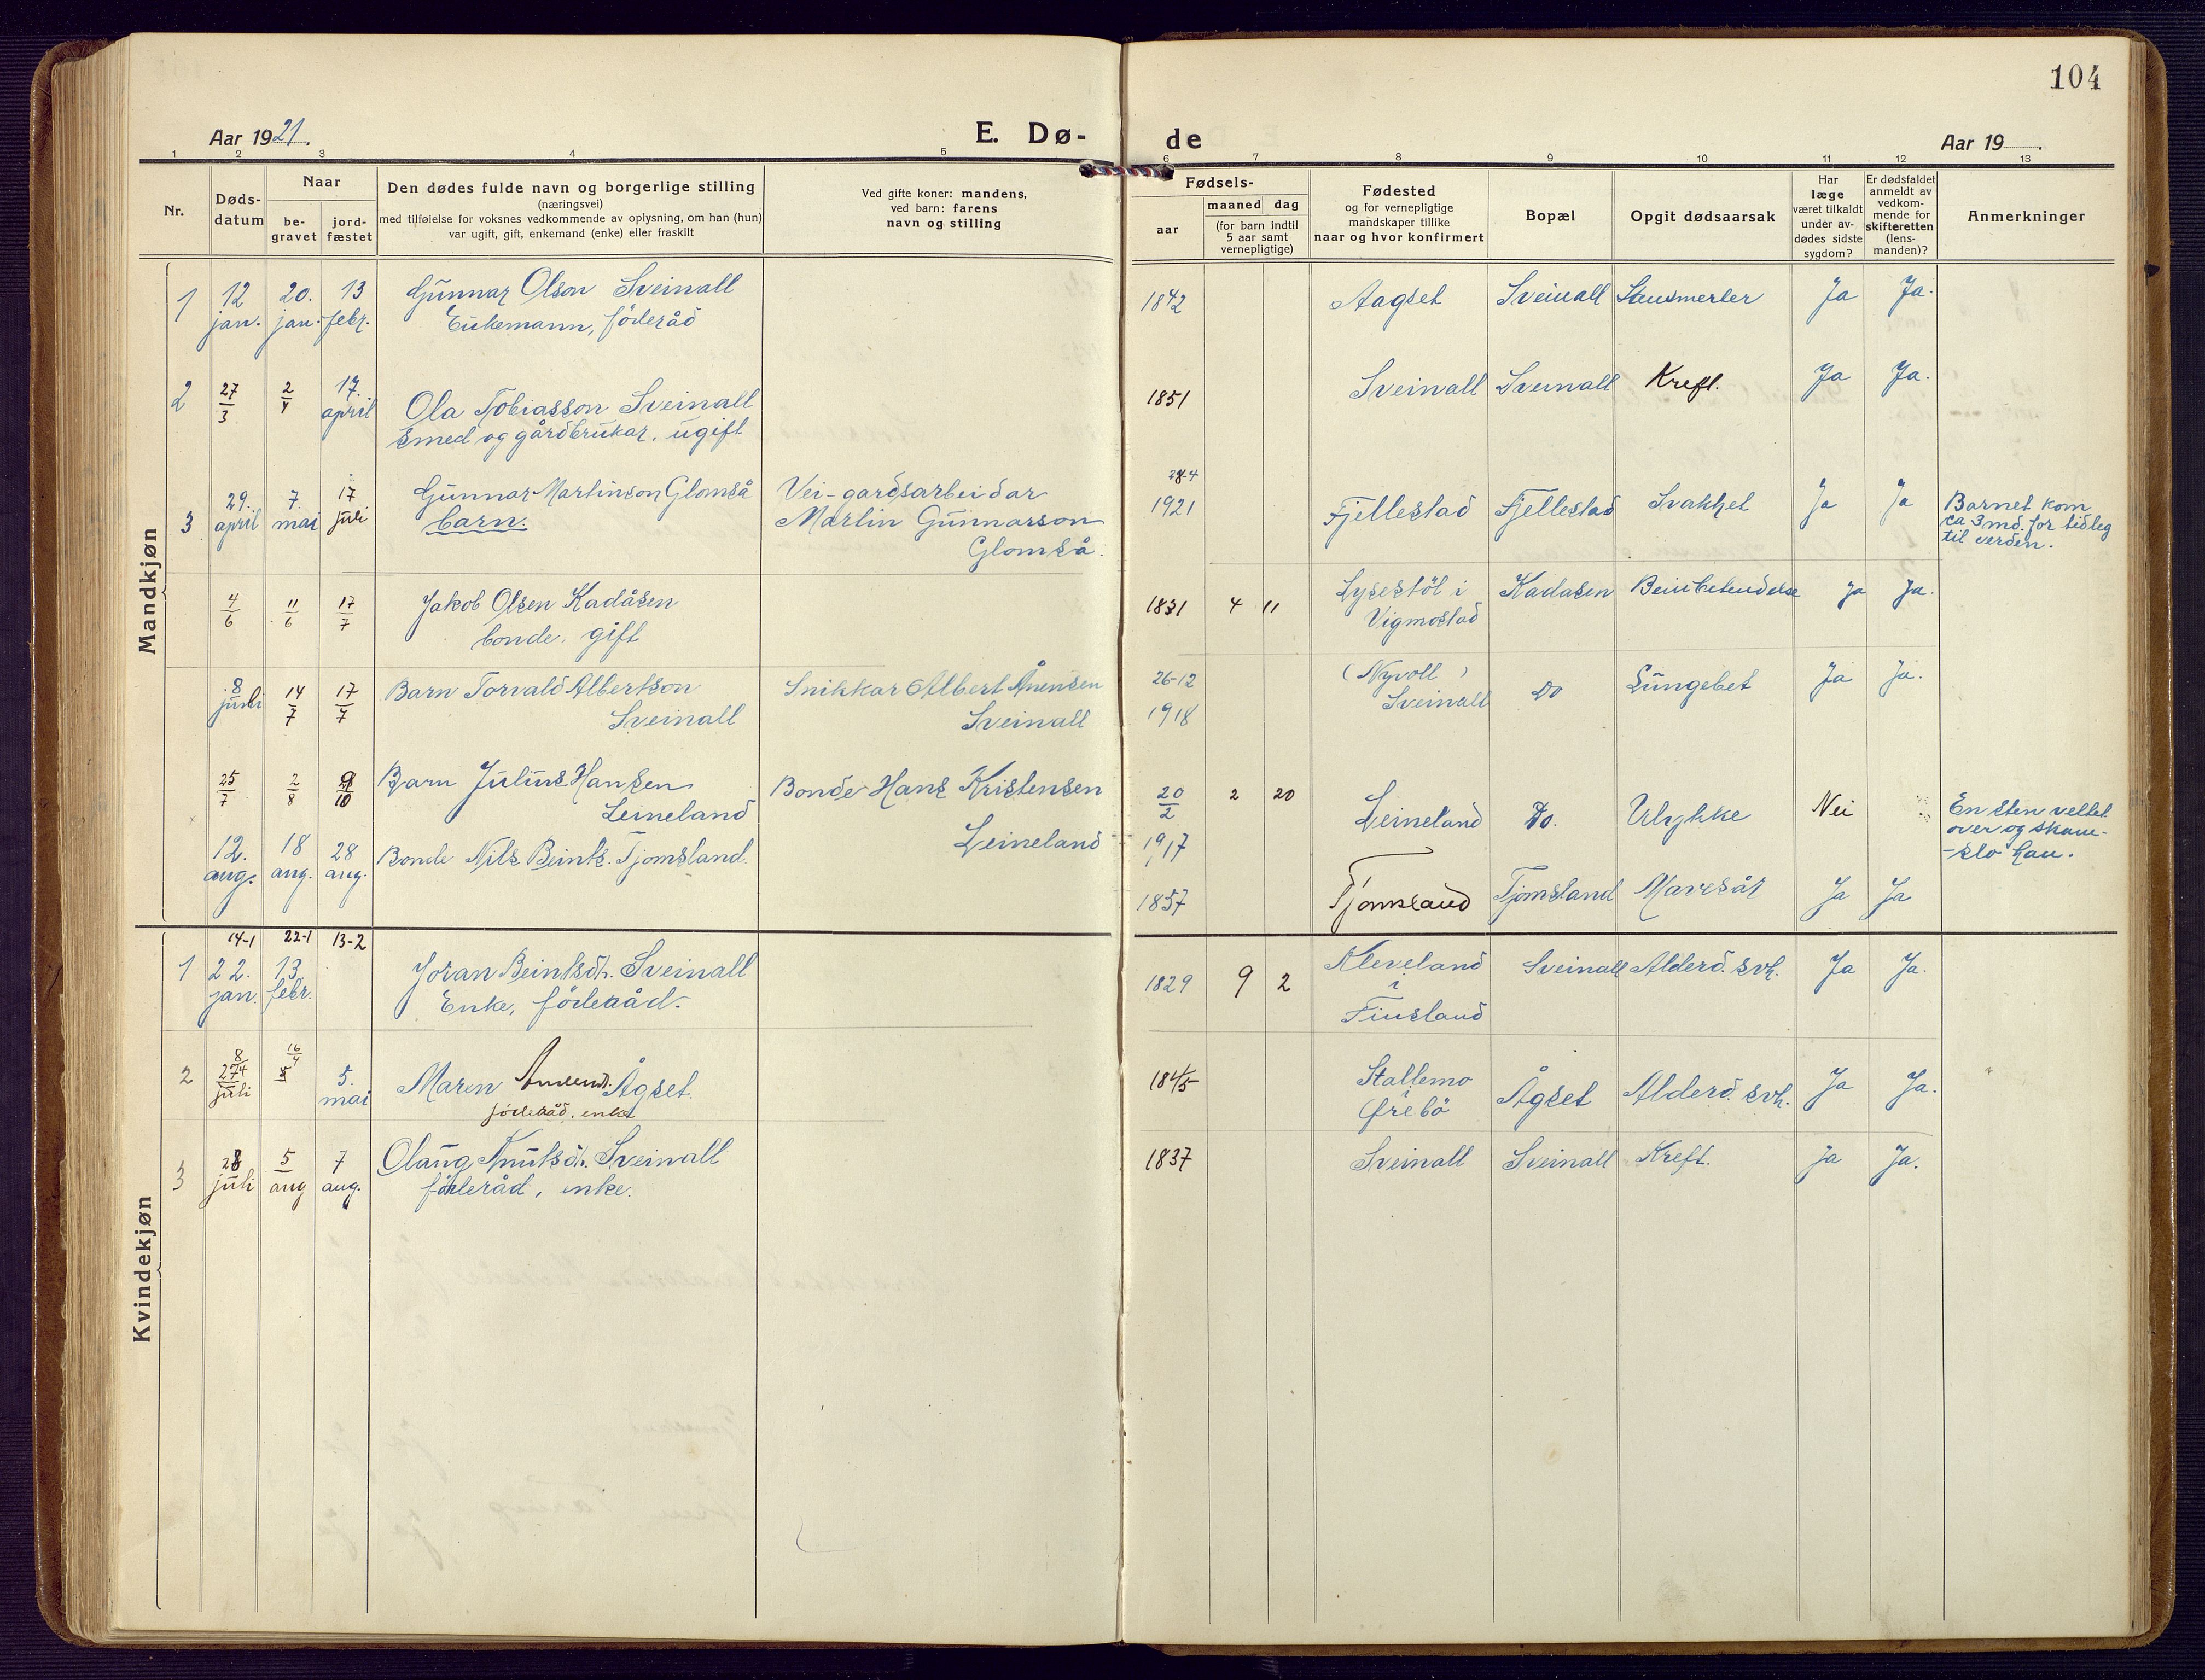 104
Aar 1921.
E. Dø-
de
Aar 19
1 2 3 4 5 6 7 8 9 10 11 12 13
Nr.
Døds-
datum
Naar
be-
gravet
jord-
fæstet
Den dødes fulde navn og borgerlige stilling
(næringsvei)
med tilføielse for voksnes vedkommende av oplysning, om han (hun)
var ugift, gift, enkemand (enke) eller fraskilt
Ved gifte koner: mandens,
ved barn: farens
navn og stilling
Fødsels-
aar
maaned dag
(for barn indtil
5 aar samt
vernepligtige)
Fødested
og for vernepligtige
mandskaper tillike
naar og hvor konfirmert
Bopæl
Opgit dødsaarsak
Har
læge
været tilkaldt
under av-
dødes sidste
sygdom?
Er dødsfaldet
anmeldt av
vedkom-
mende for
skifteretten
(lens-
manden)?
Anmerkninger
Mandkjøn
1 12 20. 13 Gunnar Olson Sveinall 1842 Aagset Sveinall Ja Ja.
jan. jan. febr. Enkemann, föderåd
2 27/3 2/4 17. april Ola Tobiasson Sveinall 1851 Sveinall Sveinall Kreft. Ja Ja.
Smed og gårdbrukar, ugift
3 29. april 7. mai 17 juli Gunnar Martinson Glomså
barn.
Vei-gardsarbeidar
Martin Gunnarson
Glomså.
28-4
1921 Fjellestad Fjellestad Svakhet Ja Ja
Barnet kom
ca 3 md. for tidleg
til verden.
4/6 11/6 17/7 Jakob Olsen Kadåsen
bonde, gift
1831 4 11 Lysestöl i
Vigmostad
Kadasen Beinbetendelse Ja Ja.
8 juli 14/7 17/7 Barn Torvald Albertson
Sveinall
Snikkar Albert Ånensen
Sveinall
26-12
1918
(Nyvoll)
Sveinall
Do Lungebet Ja Ja.
25/7 2/8 9/10 Barn Julius Hansen
Leineland
Bonde Hans Kristensen
Leineland
20/2
1917
2 20 Leineland Do. Ulykke Nei
En sten veltet
over og skam-
-slo han.
12. aug. 18 aug. 28 aug. Bonde Nils Beints. Tjomsland.
1857 Tjomsland Tjomsland Mavesår Ja Ja
Kvindekjøn
14-1 22-1 13-2
1 22. jan. 13. febr. Joran Beintsdr. Sveinall
Enke, föderåd.
1829 9 2 Kleveland
i
Finsland
Sveinall Alderd. svk. Ja Ja.
2 8/4 27/juli 16/4 5. mai Maren Ågset.
föderåd, enke
1845 Stallemo
Örebö
Ågset Alderd. svk. Ja Ja.
3 28 juli 5 aug 7 aug. Olaug Knutsdr. Sveinall
föderåd, enke.
1837 Sveinall Sveinall Kreft. Ja Ja.